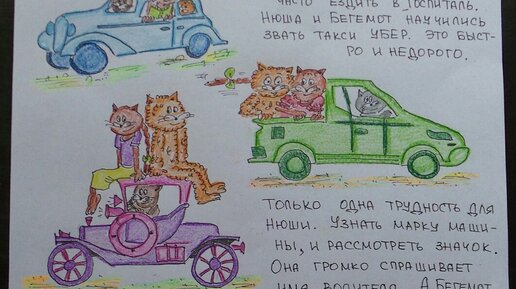 ЧАСТО ЕЗДИТЬ В ГОСПИТАЛЬ.
НЮША И БЕГЕМОТ НАУЧИЛИСЬ
ЗВАТЬ ТАКСИ УБЕР. ЭТО БЫСТ-
РО И НЕДОРОГО.
ТОЛЬКО ОДНА ТРУДНОСТЬ ДЛЯ
НЮШИ. УЗНАТЬ МАРКУ МАШИ-
НЫ, И РАССМОТРЕТЬ ЗНАЧОК.
ОНА ГРОМКО СПРАШИВАЕТ
ИМЯ ВОДИТЕЛЯ. А БЕГЕМОТ